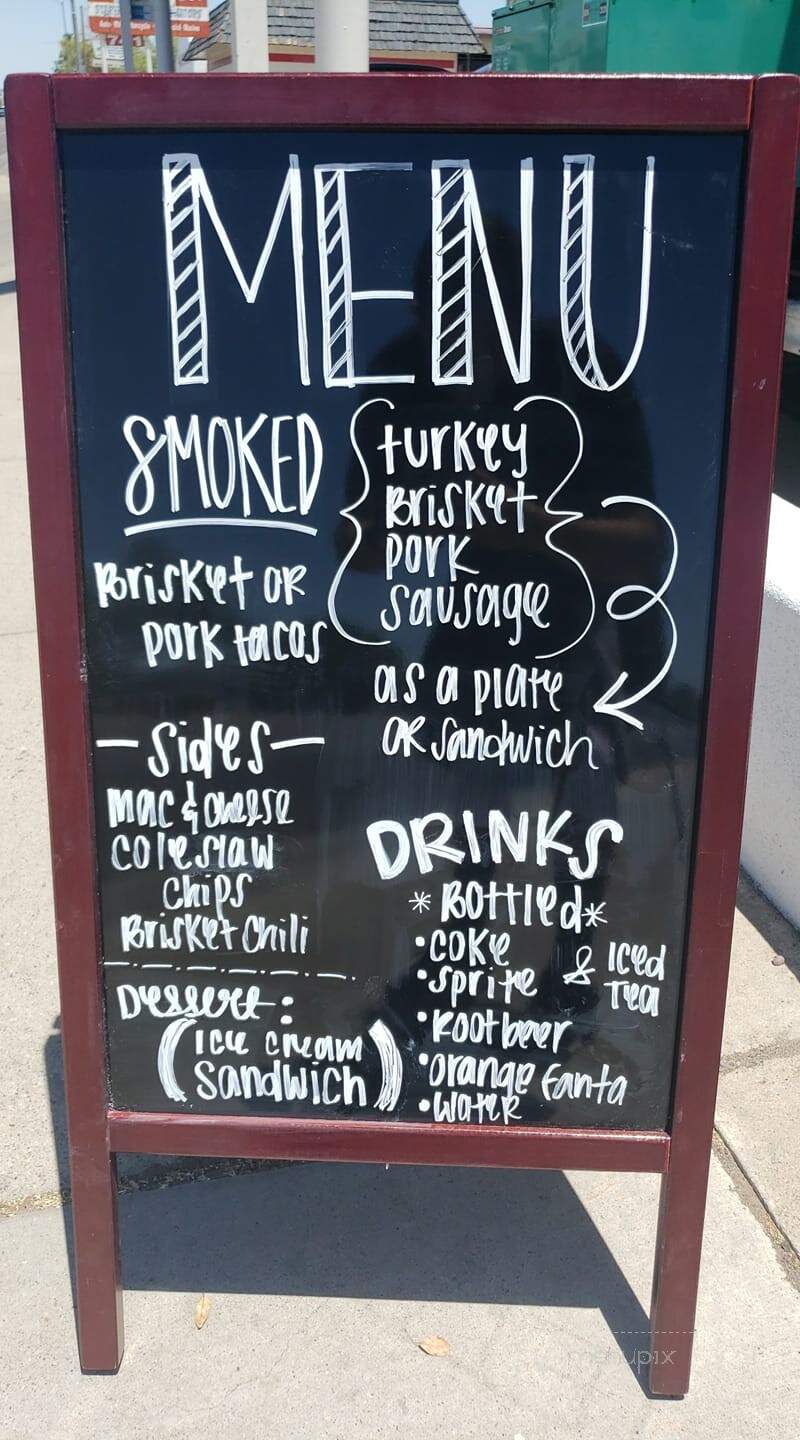 MENU
SMOKED
turkey
Brisket
pork
sausage
as a plate
OR sandwich
Brisket OR
pork tacos
- sides -
mac & cheese
coleslaw
chips
Brisket chili
Dessert:
(ice cream
sandwich)
DRINKS
*Bottled*
• coke
• sprite
• Rootbeer
• orange fanta
• water
& Iced
Tea
menupix